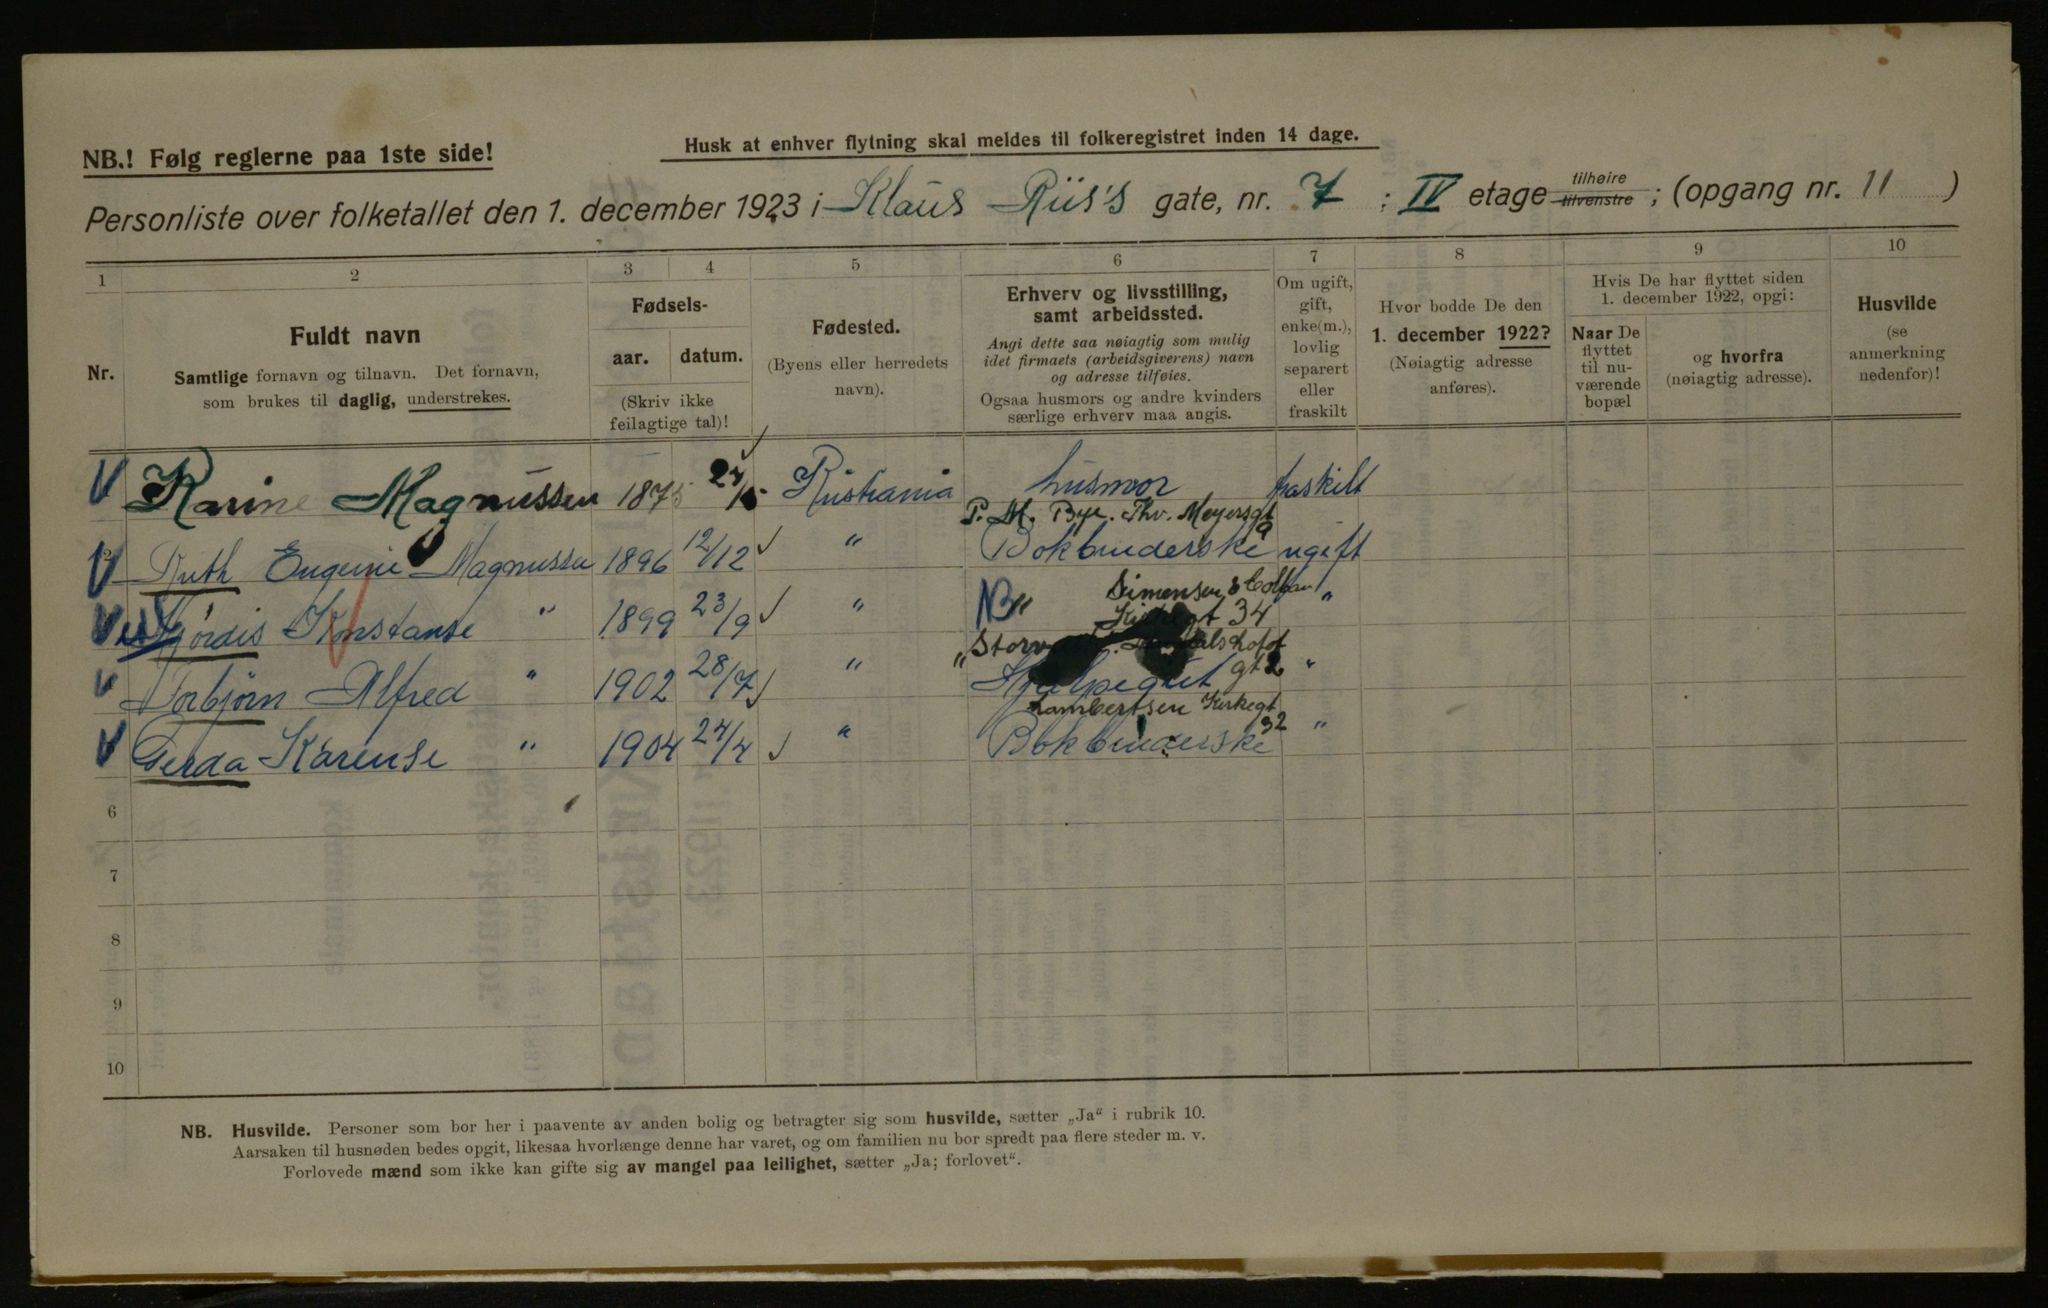 NB.! Følg reglerne paa 1ste side!
Husk at enhver flytning skal meldes til folkeregistret inden 14 dage.
Personliste over folketallet den 1. december 1923 i Klaus Riis's gate, nr. 7 ; IV etage tilhøire tilvenstre ; (opgang nr. 11 )
1 2 3 4 5 6 7 8 9 10
Nr.
Fuldt navn
Samtlige fornavn og tilnavn. Det fornavn,
som brukes til daglig, understrekes.
Fødsels-
aar. datum.
(Skriv ikke
feilagtige tal)!
Fødested.
(Byens eller herredets
navn).
Erhverv og livsstilling,
samt arbeidssted.
Angi dette saa nøiagtig som mulig
idet firmaets (arbeidsgiverens) navn
og adresse tilføies.
Ogsaa husmors og andre kvinders
særlige erhverv maa angis.
Om ugift,
gift,
enke(m.),
lovlig
separert
eller
fraskilt
Hvor bodde De den
1. december 1922?
(Nøiagtig adresse
anføres).
Hvis De har flyttet siden
1. december 1922, opgi:
Naar De
flyttet
til nu-
værende
bopæl
og hvorfra
(nøiagtig adresse).
Husvilde
(se
anmerkning
nedenfor)!
Karine Magnussen 1875 27/5 Kristiania husmor fraskilt
P. M. Bye. Thv. Meyersgt 9
Ruth Eugenie Magnussen 1896 12/12 " Bokbinderske ugift
Simensen &
Hjørdis Konstanse " 1899 23/9 " NB " Kirkegt 34 "
" Storv
gt 2
Torbjørn Alfred " 1902 28/7 " "
Lambertsen Kirkegt 32
Gerda Karense " 1904 24/4 " Bokbinderske "
6
7
8
9
10
NB. Husvilde. Personer som bor her i paavente av anden bolig og betragter sig som husvilde, sætter „Ja“ i rubrik 10.
Aarsaken til husnøden bedes opgit, likesaa hvorlænge denne har varet, og om familien nu bor spredt paa flere steder m. v.
Forlovede mænd som ikke kan gifte sig av mangel paa leilighet, sætter „Ja; forlovet“.